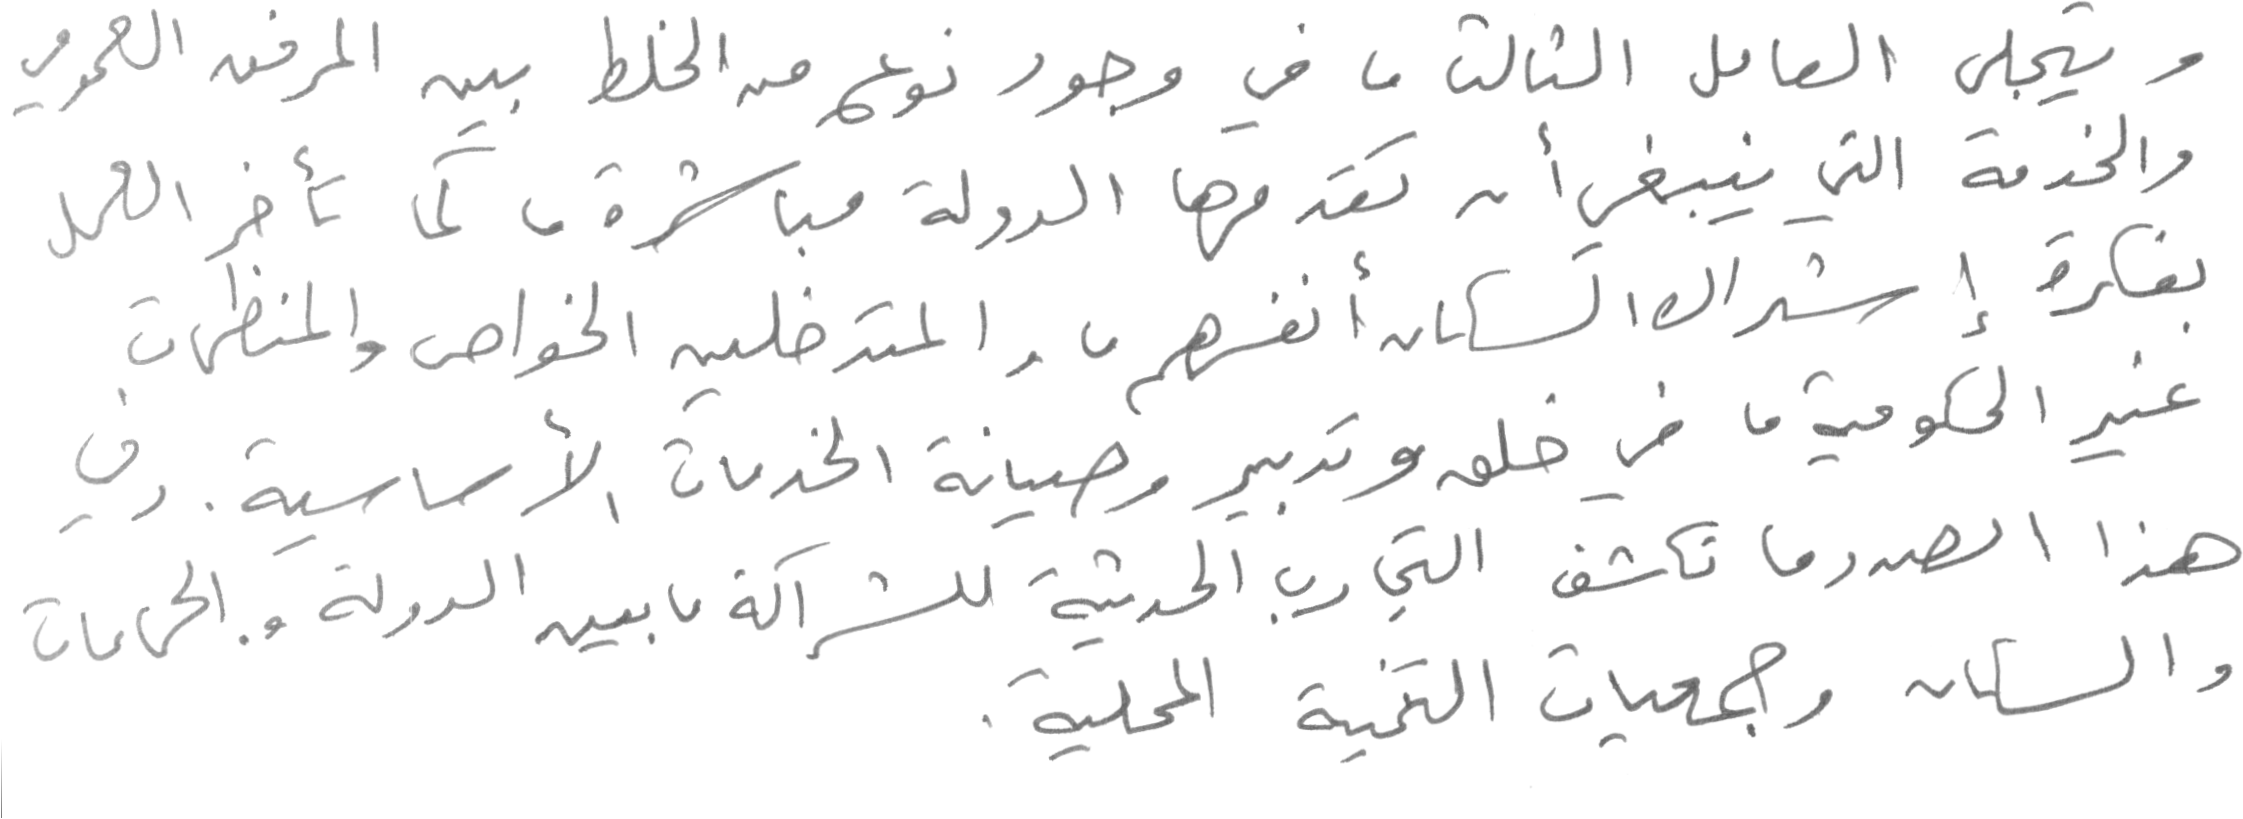 ويتجلى العامل الثالث، في وجود نوع من الخلط بين المرفق العمومي
والخدمة التي ينبغي أن تقدمها الدولة مباشرة، كما تأخر العمل
بفكرة إشراك السكان أنفسهم، والمتدخلين الخواص والمنظمات
غير الحكومية، في خلق وتدبير وصيانة الخدمات الأساسية. وفي
هذا الصدد، تكشف التجارب الحديثة للشراكة ما بين الدولة والجماعات
والسكان وجمعيات التنمية المحلية.